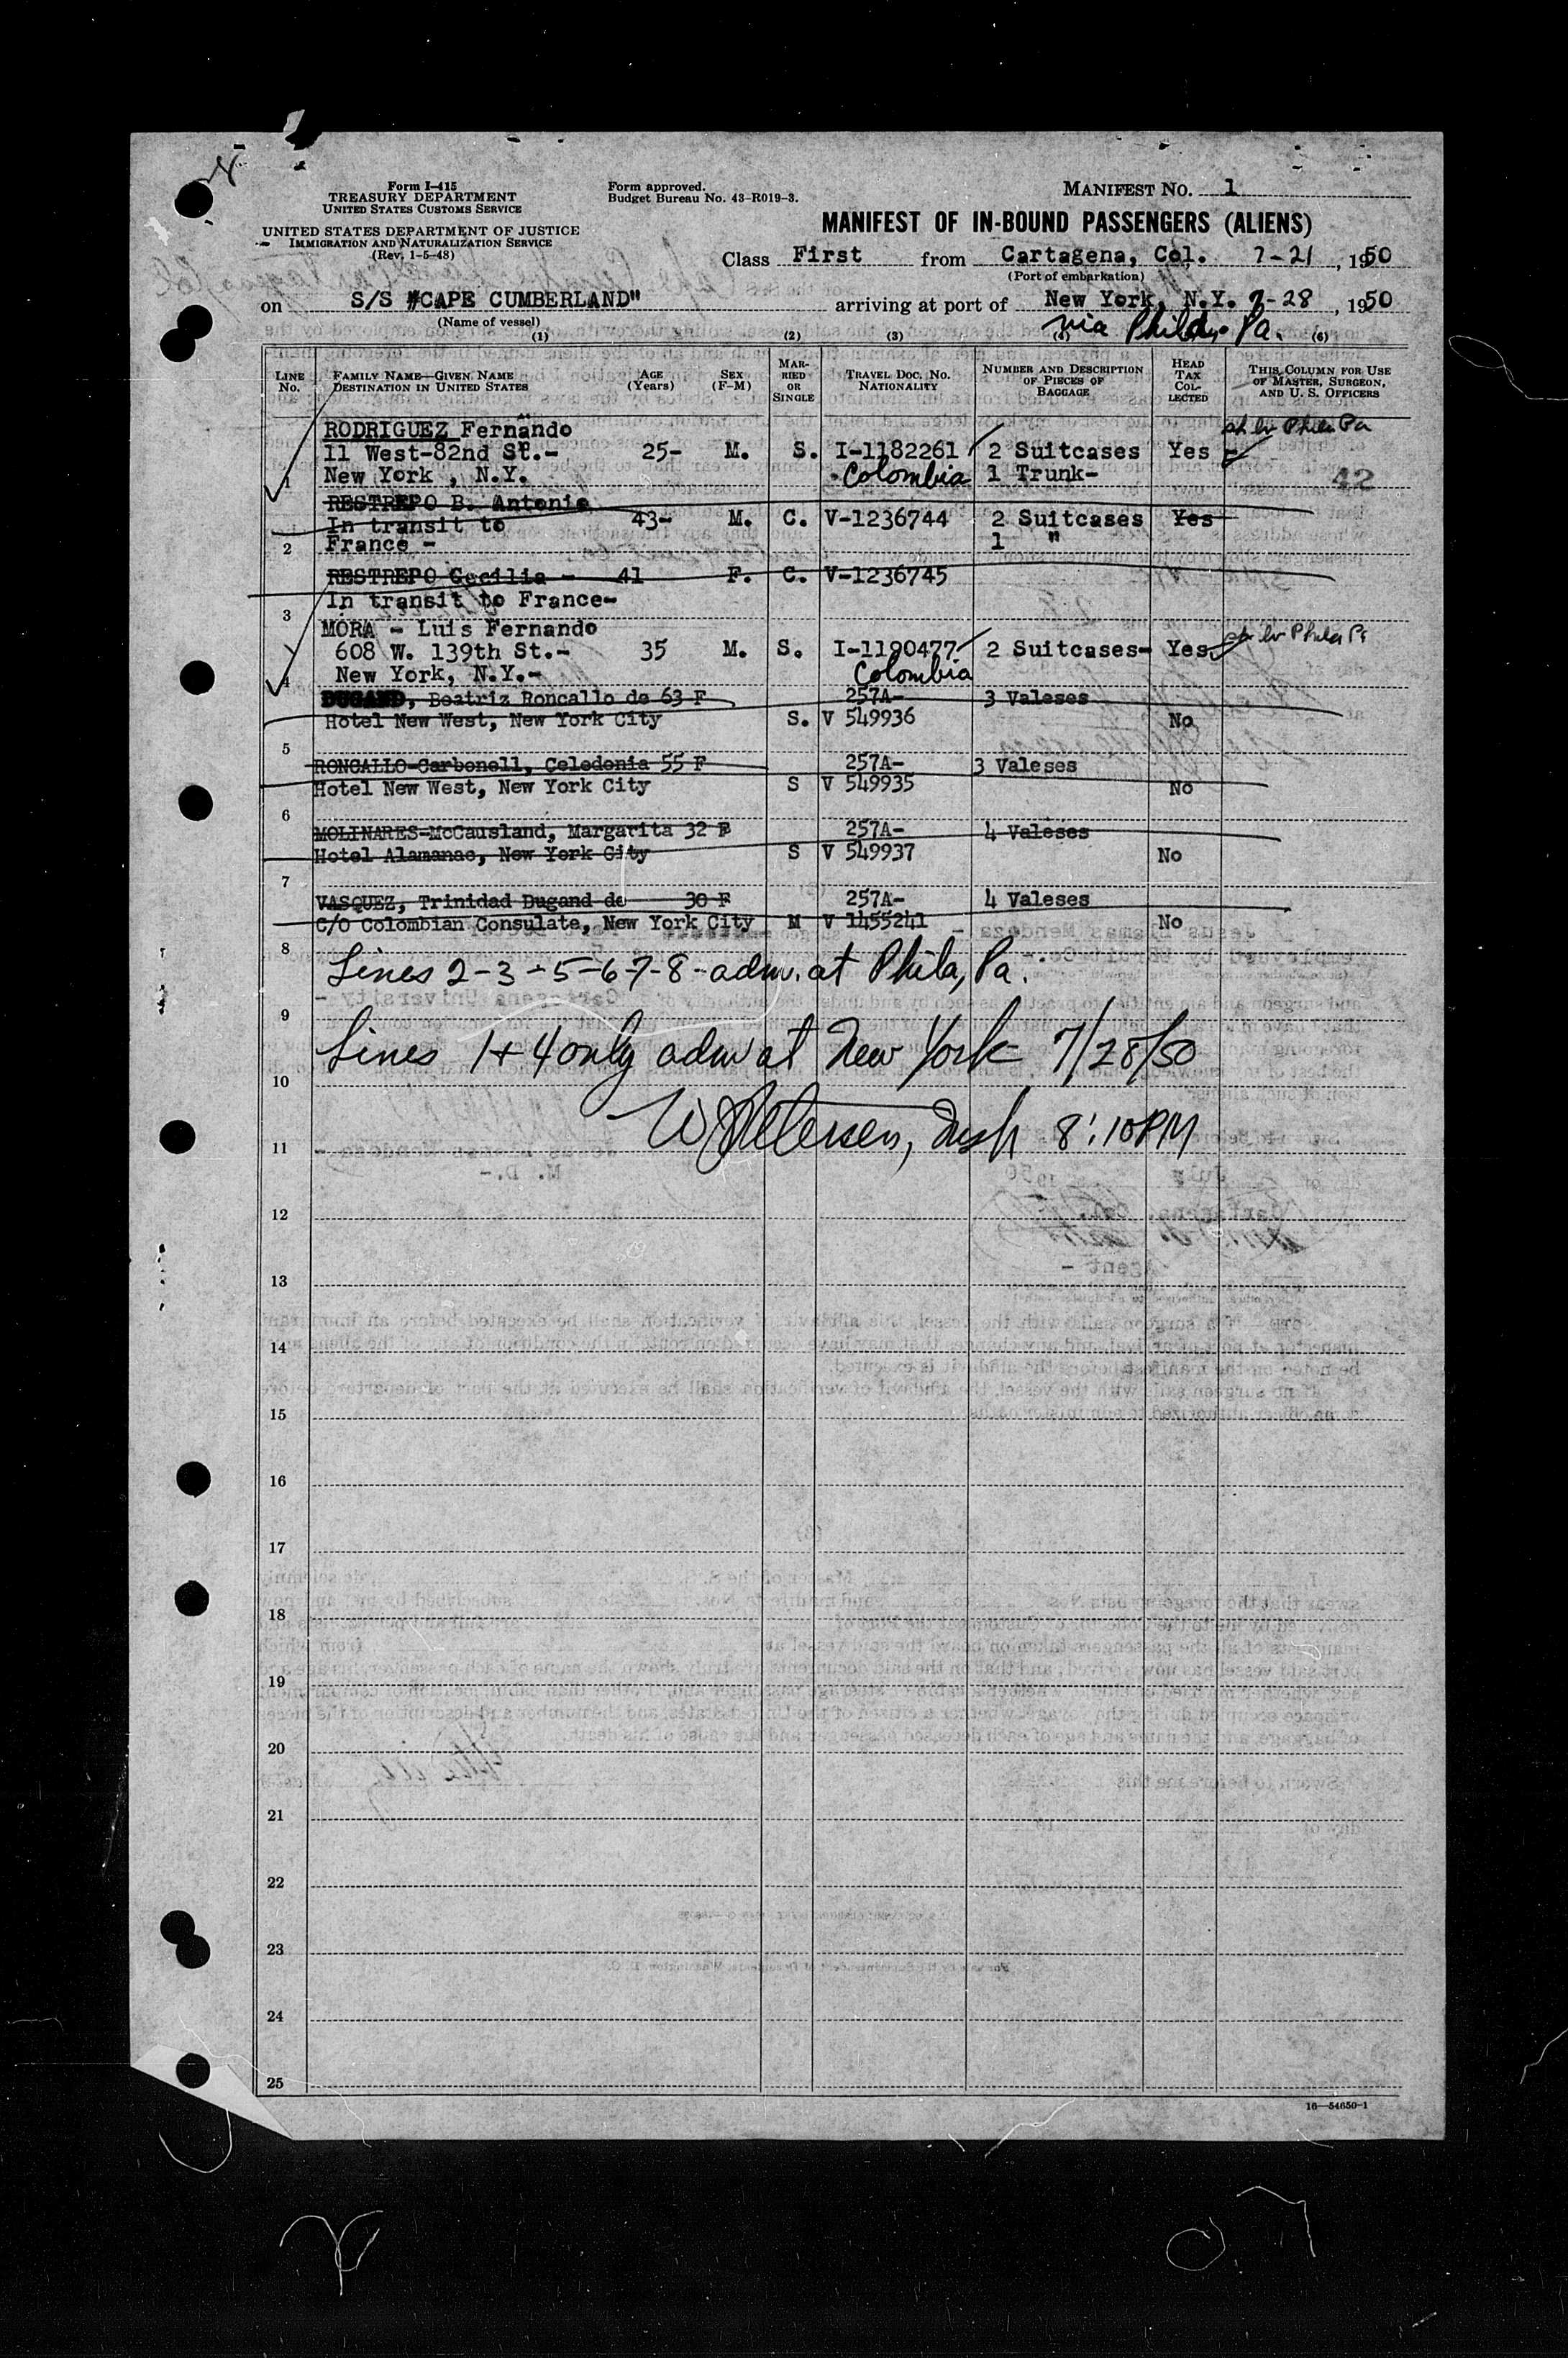 Form I-415
TREASURY DEPARTMENT
UNITED STATES CUSTOMS SERVICE
UNITED STATES DEPARTMENT OF JUSTICE
IMMIGRATION AND NATURALIZATION SERVICE
(Rev. 1-5-48)
Form approved.
Budget Bureau No. 43-R019-3.
MANIFEST NO. 1
MANIFEST OF IN-BOUND PASSENGERS (ALIENS)
Class First from Cartagena, Col. 7-21, 1950
(Port of embarkation)
on S/S "CAPE CUMBERLAND" arriving at port of New York, N.Y. 7-28, 1950
(Name of vessel)
via Phila, Pa.
(1) (2) (3) (4) (5) (6)
LINE No. FAMILY NAME—GIVEN NAME DESTINATION IN UNITED STATES AGE (Years) SEX (F-M) MARRIED OR SINGLE TRAVEL DOC. NO. NATIONALITY NUMBER AND DESCRIPTION OF PIECES OF BAGGAGE HEAD TAX COLLECTED THIS COLUMN FOR USE OF MASTER, SURGEON, AND U. S. OFFICERS
RODRIGUEZ Fernando
11 West-82nd St.- 25- M. S. I-1182261 2 Suitcases Yes
1 New York, N.Y. Colombia 1 Trunk- 42
RESTREPO B. Antonio
In transit to 43- M. C. V-1236744 2 Suitcases Yes
2 France - 1 "
RESTREPO Cecilia - 41 F. C. V-1236745
In transit to France-
3
MORA - Luis Fernando
608 W. 139th St.- 35 M. S. I-1190477 2 Suitcases- Yes
4 New York, N.Y.- Colombia
DUGAND, Beatriz Roncallo de 63 F 257A- 3 Valeses
Hotel New West, New York City S. V 549936 No
5
RONCALLO-Carbonell, Celedonia 55 F 257A- 3 Valeses
Hotel New West, New York City S V 549935 No
6
MOLINARES-McCausland, Margarita 32 F 257A- 4 Valeses
Hotel Alamanac, New York City S V 549937 No
7
VASQUEZ, Trinidad Dugand de 30 F 257A- 4 Valeses
C/O Colombian Consulate, New York City M V 1455241 No
8
Lines 2-3-5-6-7-8-adm. at Phila, Pa.
9
Lines 1+4 only adm at New York 7/28/50
10
W Petersen, Insp 8:10PM
11
12
13
14
15
16
17
18
19
20
21
22
23
24
25
16—54650-1